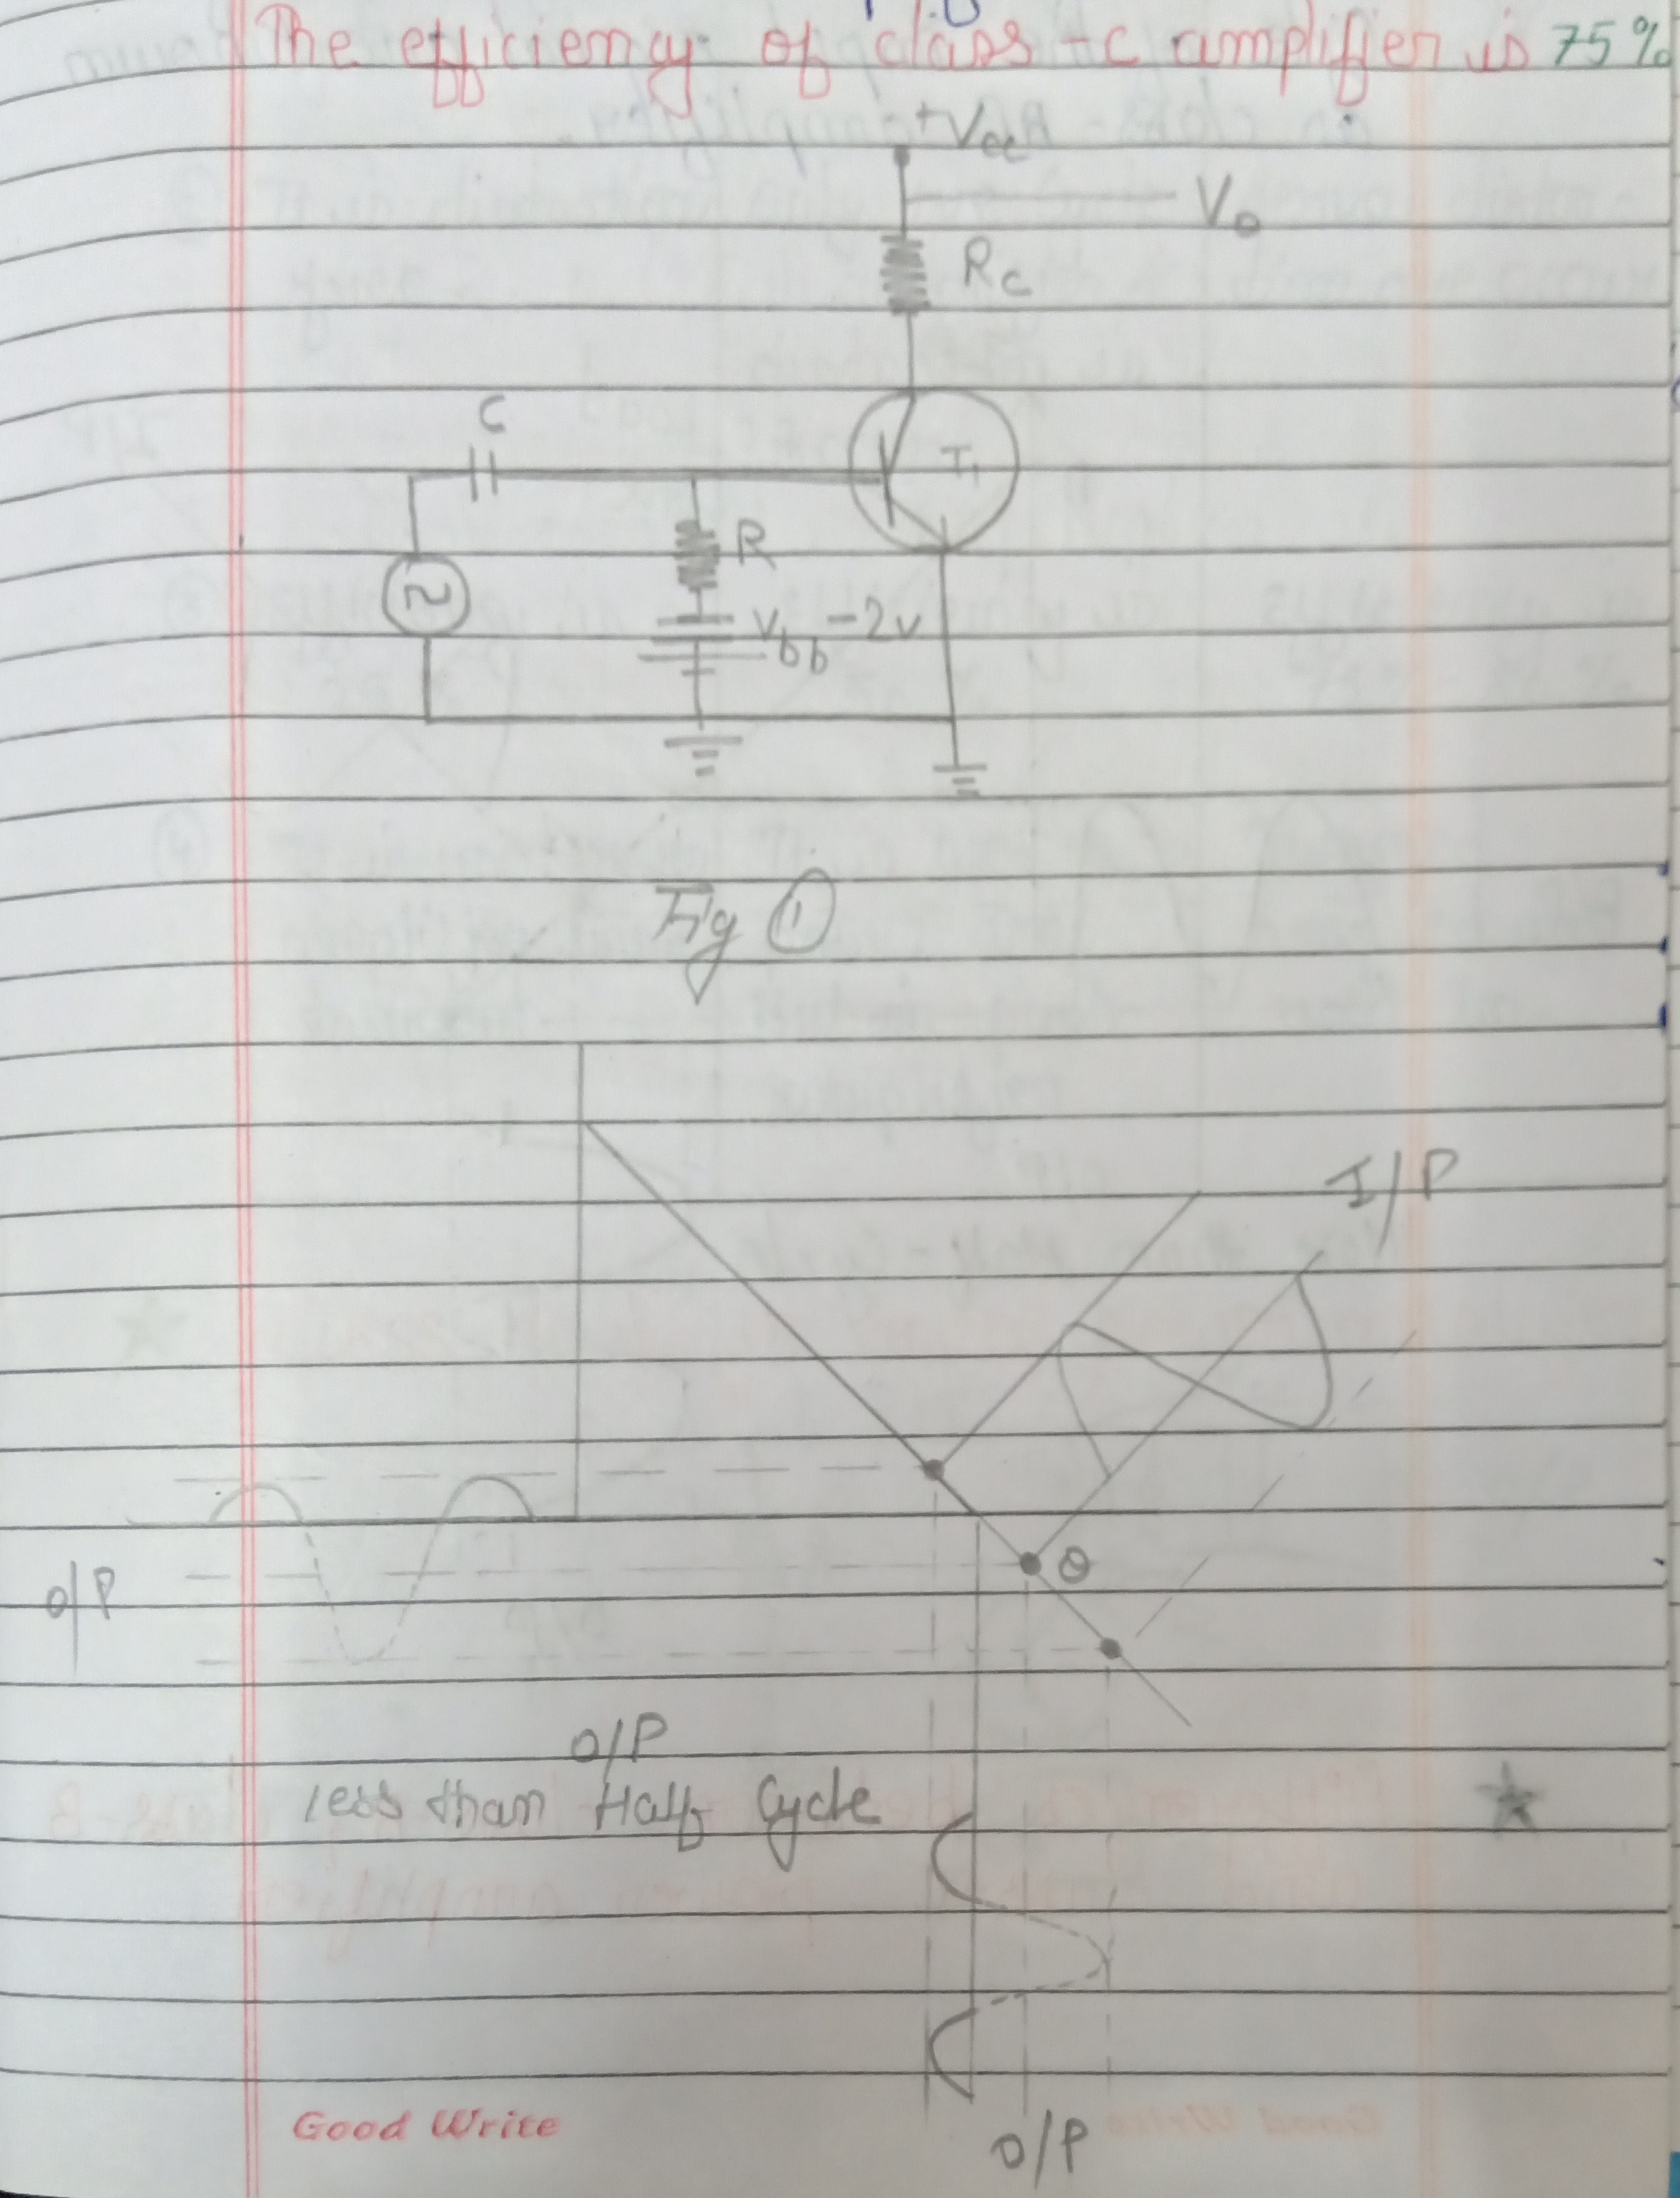 The efficiency of class-c amplifier is 75%
+Vcc
Vo
Rc
C
T1
R
Vbb -2v
Fig ①
I/P
Q
O/P
O/P
less than Half Cycle
Good Write
O/P